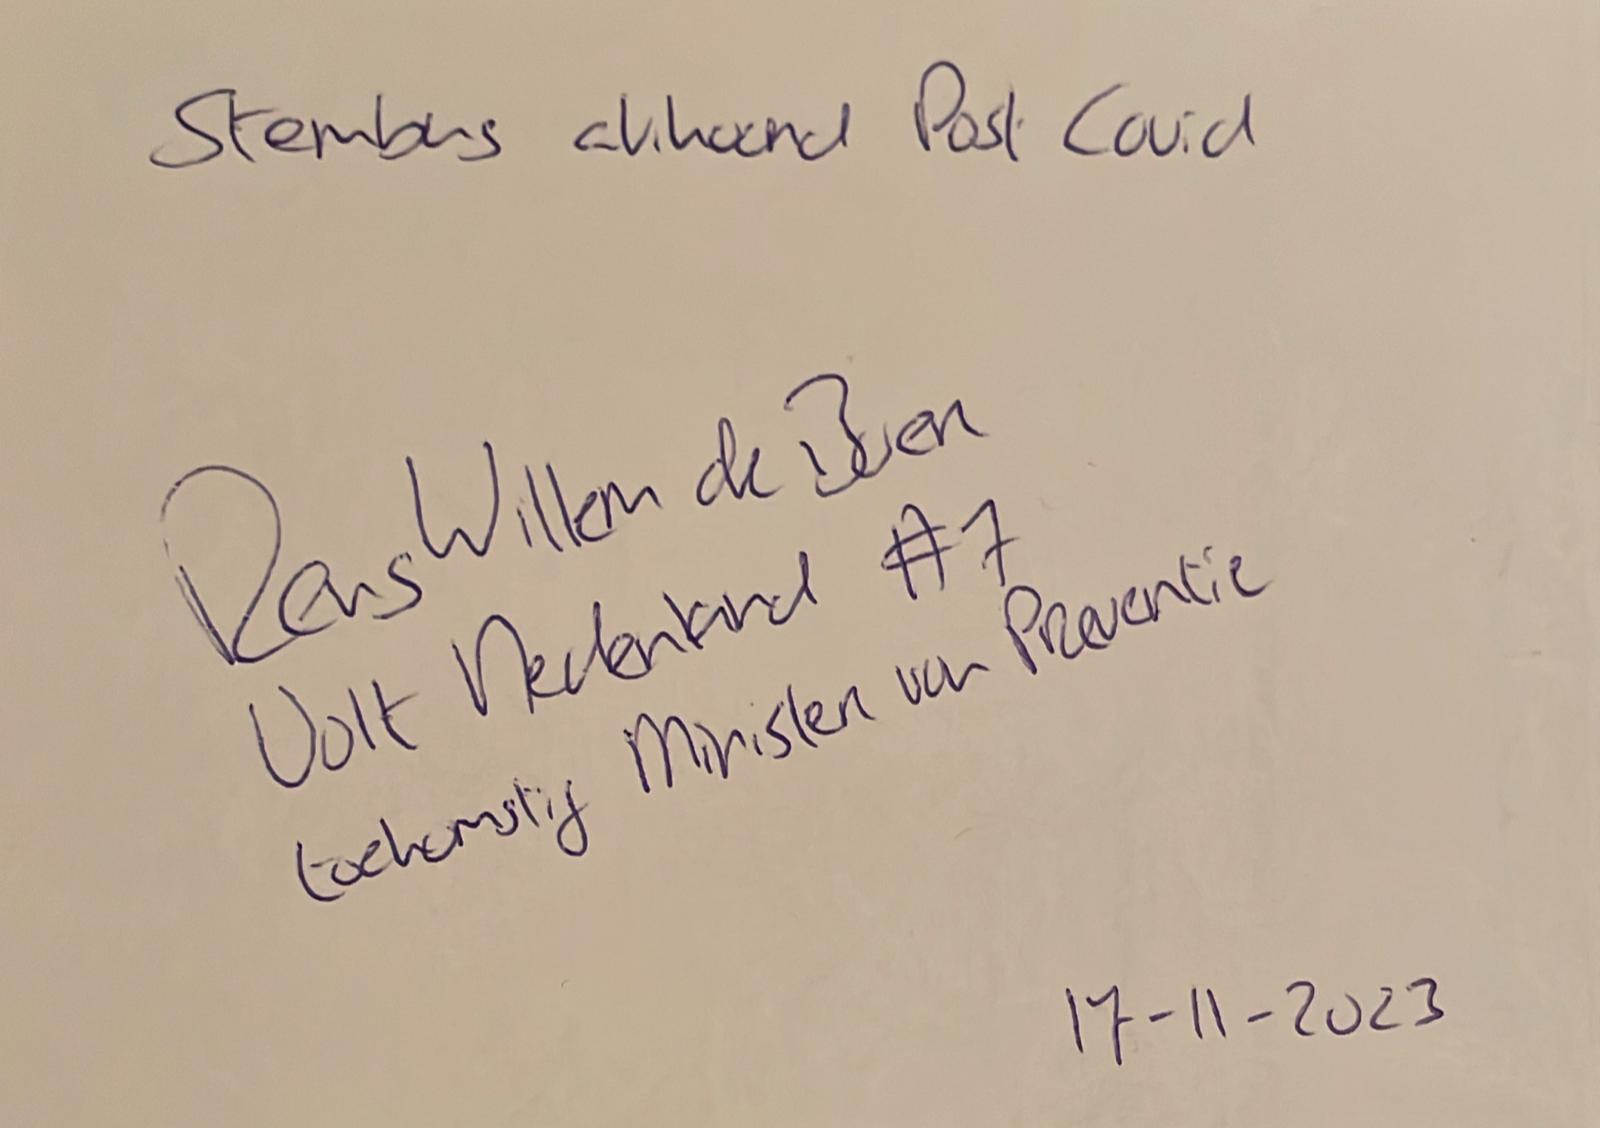 Stembus akkoord Post Covid
Rens Willem de Boer
Volt Nederland #7
toekomstig Minister van Preventie
17-11-2023